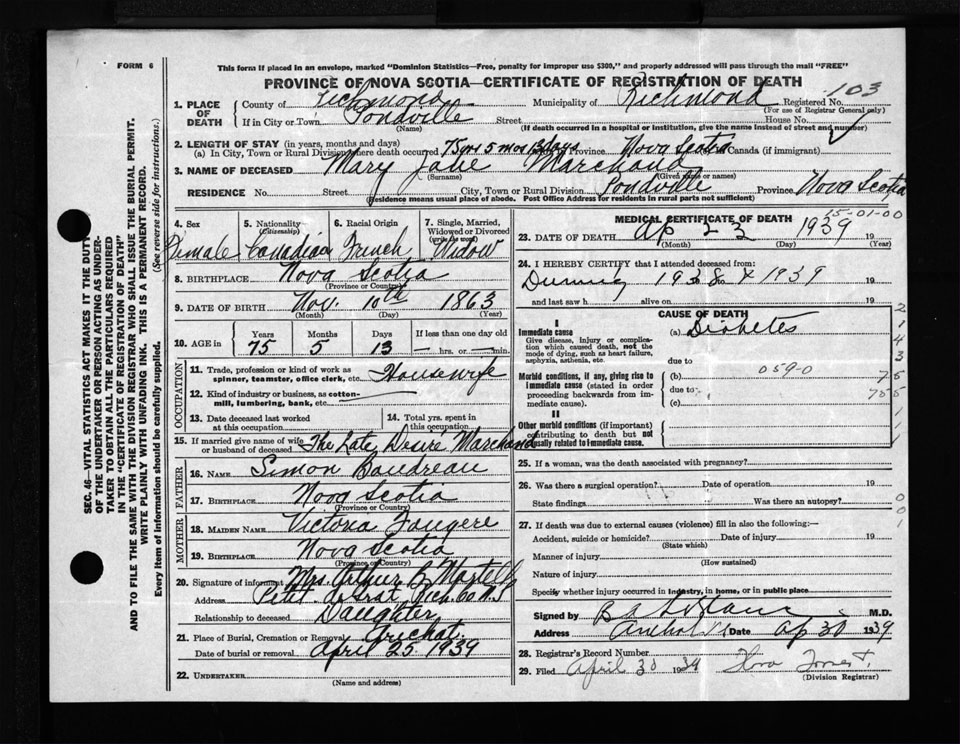 FORM 6
This form if placed in an envelope, marked "Dominion Statistics—Free, penalty for improper use $300," and properly addressed will pass through the mail "FREE"
PROVINCE OF NOVA SCOTIA—CERTIFICATE OF REGISTRATION OF DEATH
103
1. PLACE OF DEATH
County of Richmond Municipality of Richmond Registered No.
(For use of Registrar General only)
If in City or Town Pondville Street House No.
(Name) (If death occurred in a hospital or institution, give the name instead of street and number)
2. LENGTH OF STAY (in years, months and days)
(a) In City, Town or Rural Division where death occurred 75 yrs 5 mos 13 days in Province Nova Scotia Canada (if immigrant)
3. NAME OF DECEASED Mary Jane Marchand
(Surname) (Given name or names)
RESIDENCE No. Street City, Town or Rural Division Pondville Province Nova Scotia
(Residence means usual place of abode. Post Office Address for residents in rural parts not sufficient)
4. Sex Female
5. Nationality (Citizenship) Canadian
6. Racial Origin French
7. Single, Married, Widowed or Divorced (write the word) Widow
8. BIRTHPLACE Nova Scotia
(Province or Country)
9. DATE OF BIRTH Nov. 10th 1863
(Month) (Day) (Year)
10. AGE in
Years Months Days If less than one day old
75 5 13 hrs. or min.
OCCUPATION
11. Trade, profession or kind of work as spinner, teamster, office clerk, etc. Housewife
12. Kind of industry or business, as cotton-mill, lumbering, bank, etc.
13. Date deceased last worked at this occupation
14. Total yrs. spent in this occupation
15. If married give name of wife or husband of deceased The Late Desire Marchand
FATHER
16. NAME Simon Boudreau
17. BIRTHPLACE Nova Scotia
(Province or Country)
MOTHER
18. MAIDEN NAME Victoria Fougere
19. BIRTHPLACE Nova Scotia
(Province or Country)
20. Signature of informant Mrs. Arthur Martell
Address Petit de Grat Rich. Co N.S
Relationship to deceased Daughter
21. Place of Burial, Cremation or Removal Arichat
Date of burial or removal April 25 1939
22. UNDERTAKER
(Name and address)
MEDICAL CERTIFICATE OF DEATH
15-01-00
23. DATE OF DEATH Ap 23 1939 19
(Month) (Day) (Year)
24. I HEREBY CERTIFY that I attended deceased from:
During 1938 & 1939 19
and last saw h alive on 19
CAUSE OF DEATH
I
Immediate cause (a) Diabetes
Give disease, injury or complication which caused death, not the mode of dying, such as heart failure, asphyxia, asthenia, etc.
due to
Morbid conditions, if any, giving rise to immediate cause (stated in order proceeding backwards from immediate cause).
(b) 059-0
due to
(c)
II
Other morbid conditions (if important) contributing to death but not causally related to immediate cause.
25. If a woman, was the death associated with pregnancy?
26. Was there a surgical operation? Date of operation 19
State findings Was there an autopsy?
27. If death was due to external causes (violence) fill in also the following:—
Accident, suicide or homicide? Date of injury 19
(State which)
Manner of injury
(How sustained)
Nature of injury
Specify whether injury occurred in industry, in home, or in public place
Signed by M.D.
Address Date Ap 30 1939
28. Registrar's Record Number
29. Filed April 30 1939
(Division Registrar)
SEC. 46—VITAL STATISTICS ACT MAKES IT THE DUTY OF THE UNDERTAKER OR PERSON ACTING AS UNDERTAKER TO OBTAIN ALL THE PARTICULARS REQUIRED IN THE "CERTIFICATE OF REGISTRATION OF DEATH" AND TO FILE THE SAME WITH THE DIVISION REGISTRAR WHO SHALL ISSUE THE BURIAL PERMIT.
WRITE PLAINLY WITH UNFADING INK. THIS IS A PERMANENT RECORD.
Every item of information should be carefully supplied. (See reverse side for instructions.)